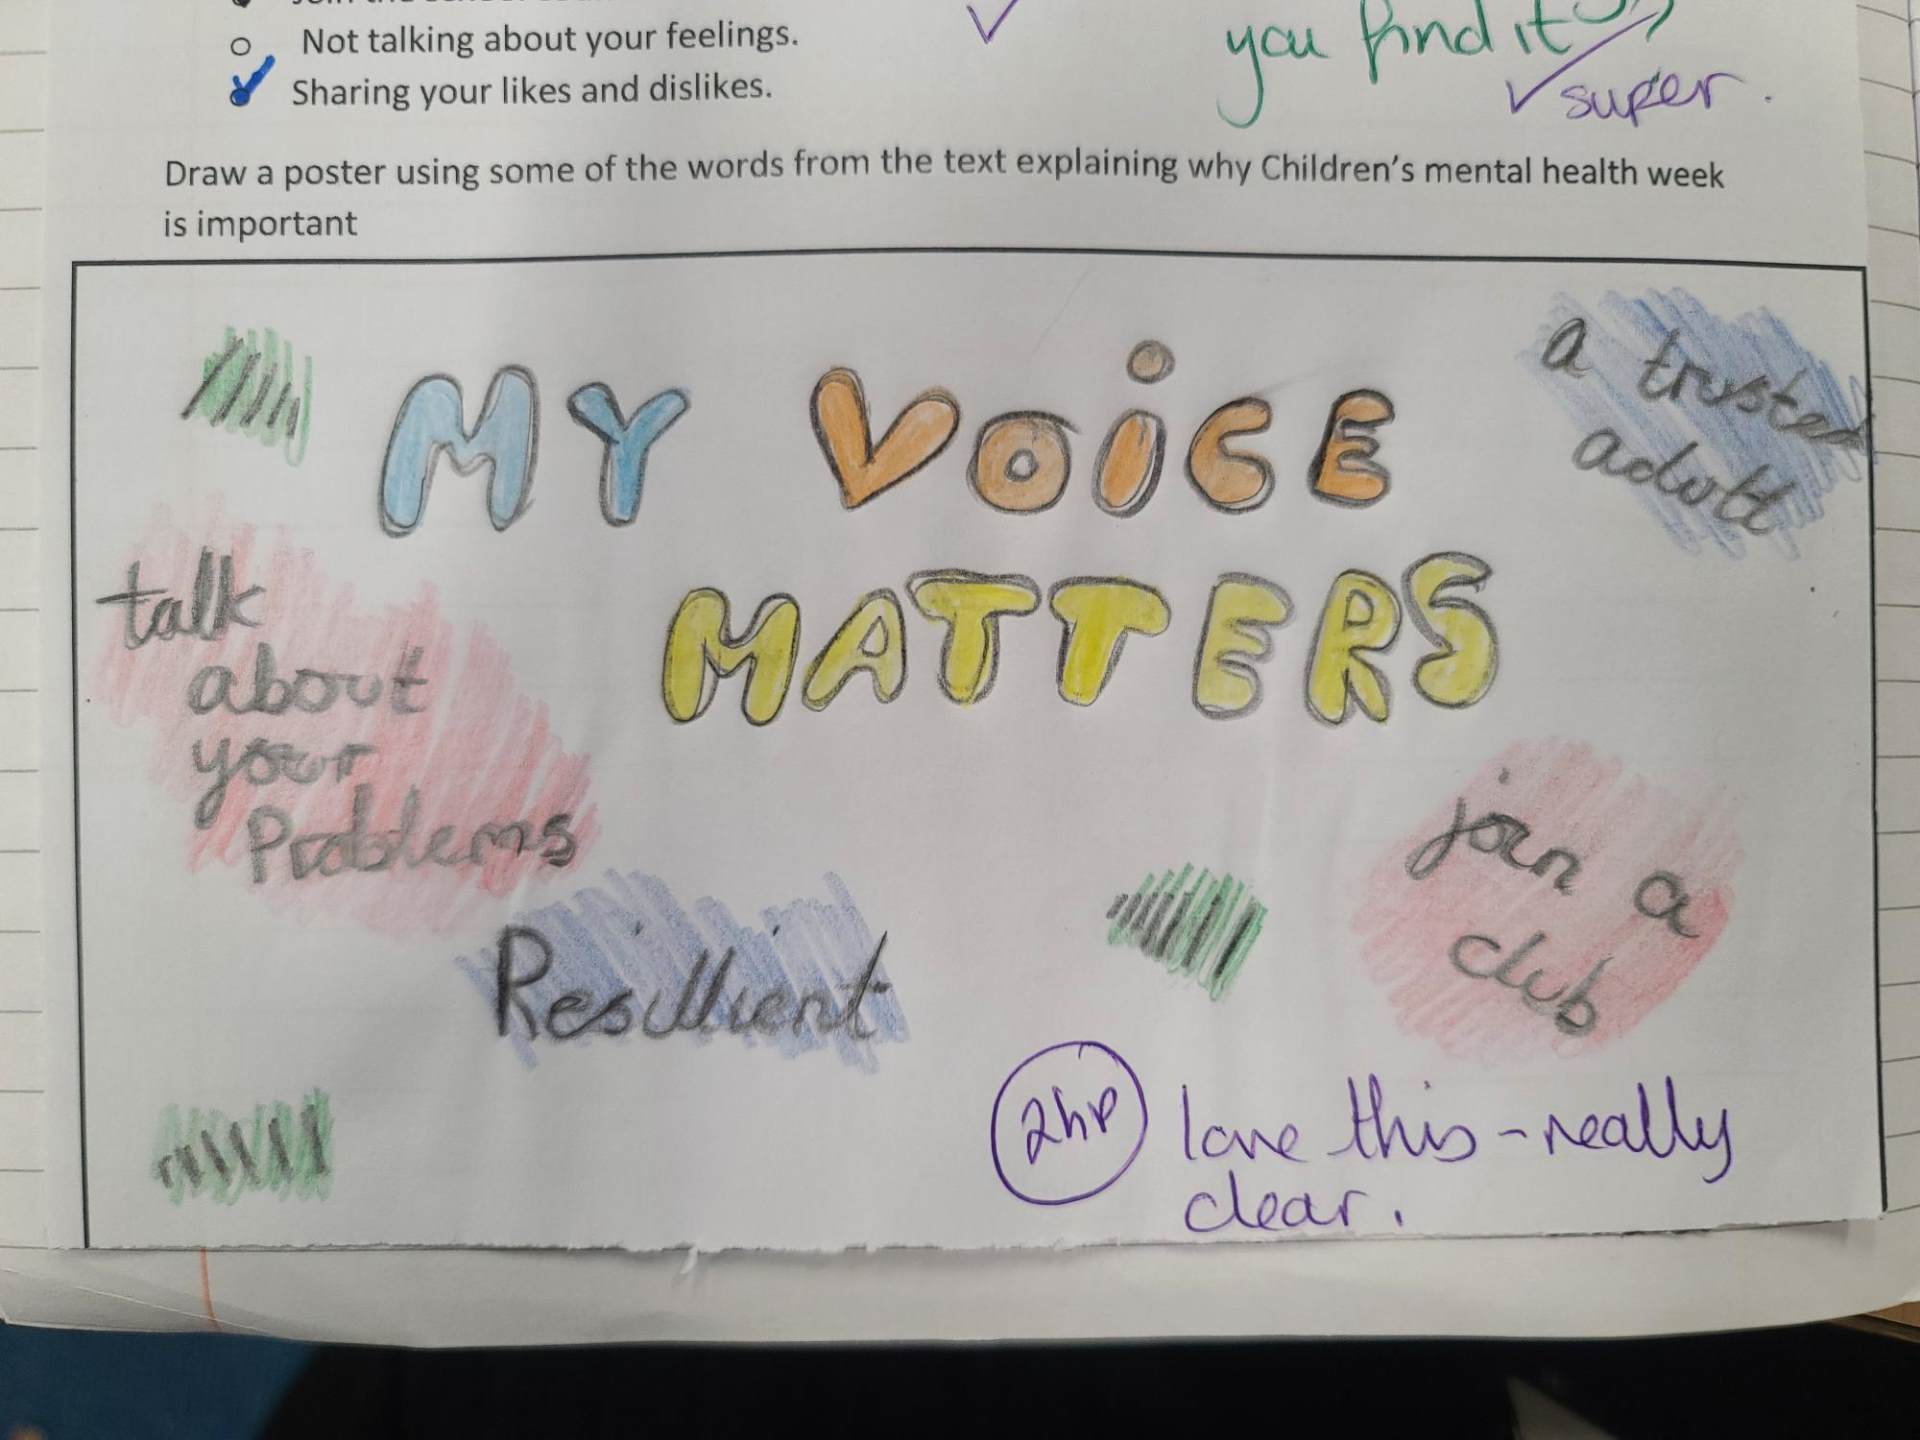 Not talking about your feelings.
Sharing your likes and dislikes.
you find it
super.
Draw a poster using some of the words from the text explaining why Children's mental health week
is important
MY VOiCE
MATTERS
a trusted
adult
talk
about
your
Problems
Resillient
join a
club
2hp
love this - really
clear.